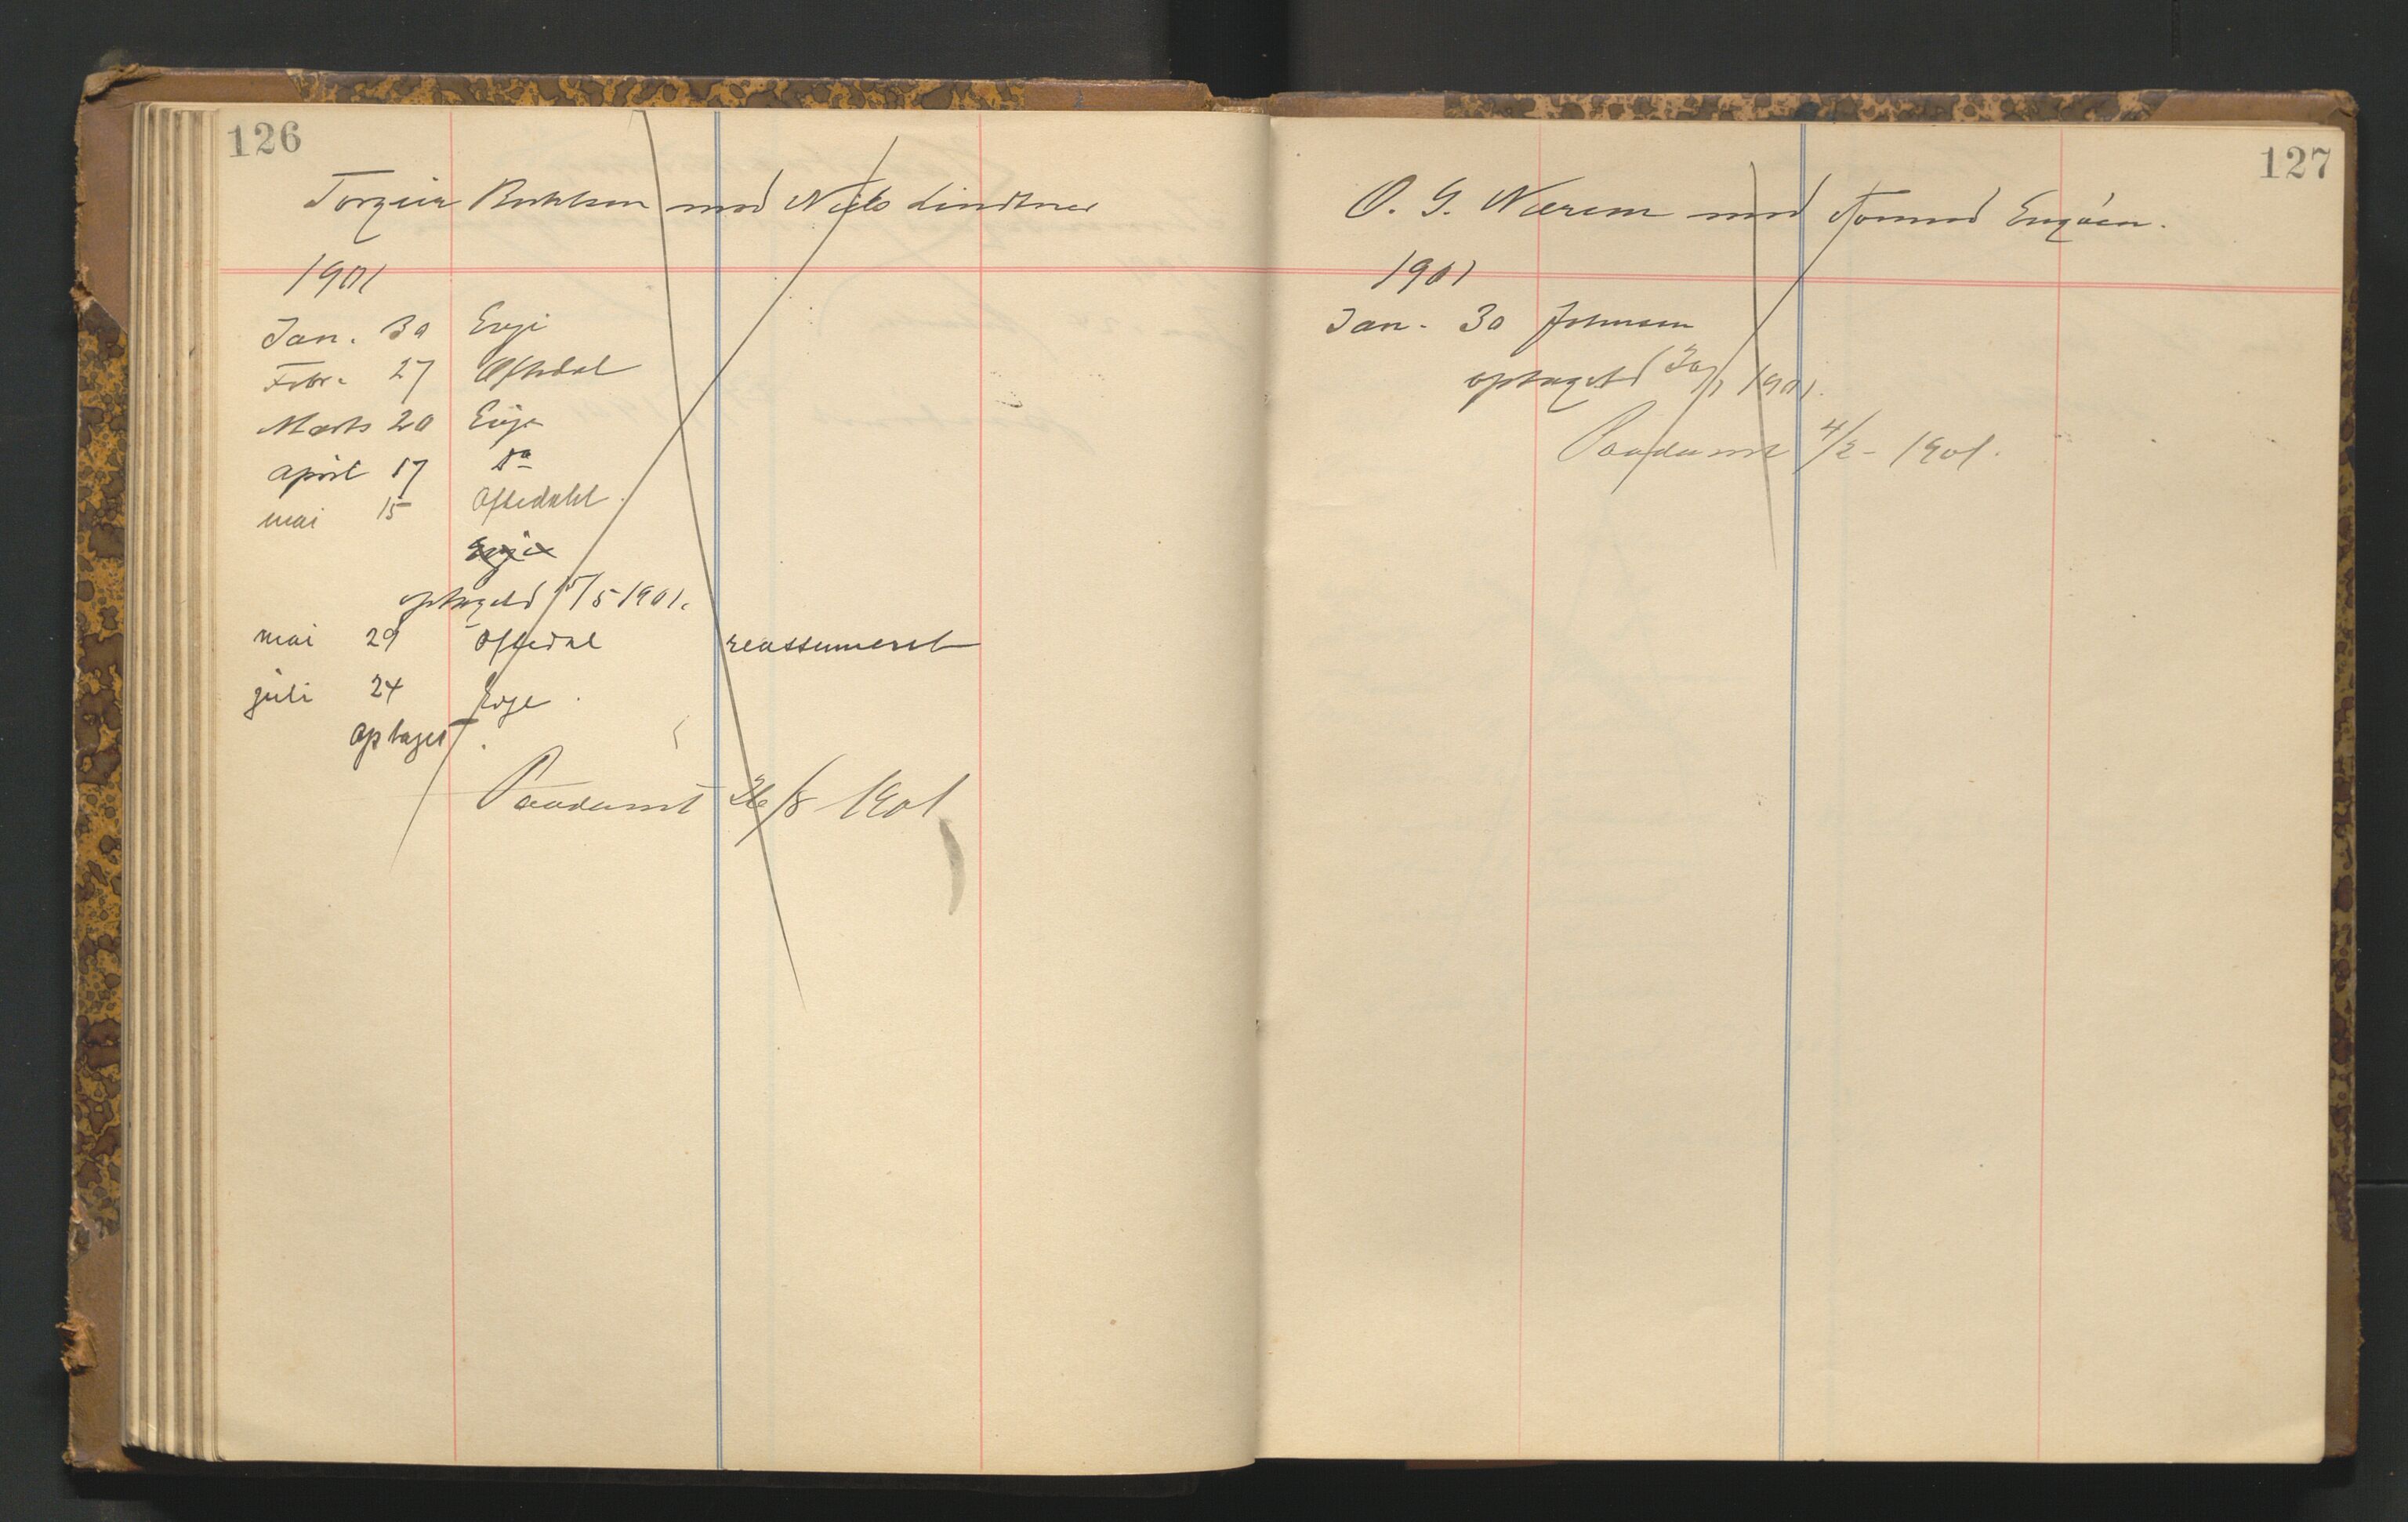 126
Torgeir mod Niels Lindtner
1901
Jan. 30 Evje
Febr. 27 Oftedal
Marts 20 Evje
april 17 do
mai 15 Oftedahl.
Evje
optaget 15/5 1901.
mai 29 Oftedal reassumeret
juli 24 Evje.
Optaget.
Paadømt 26/8 1901
127
O. G. Nærem mod Tormod Engøen.
1901
Jan. 30 Johnsen
optaget 30/1 1901.
Paadømt 4/2 - 1901.